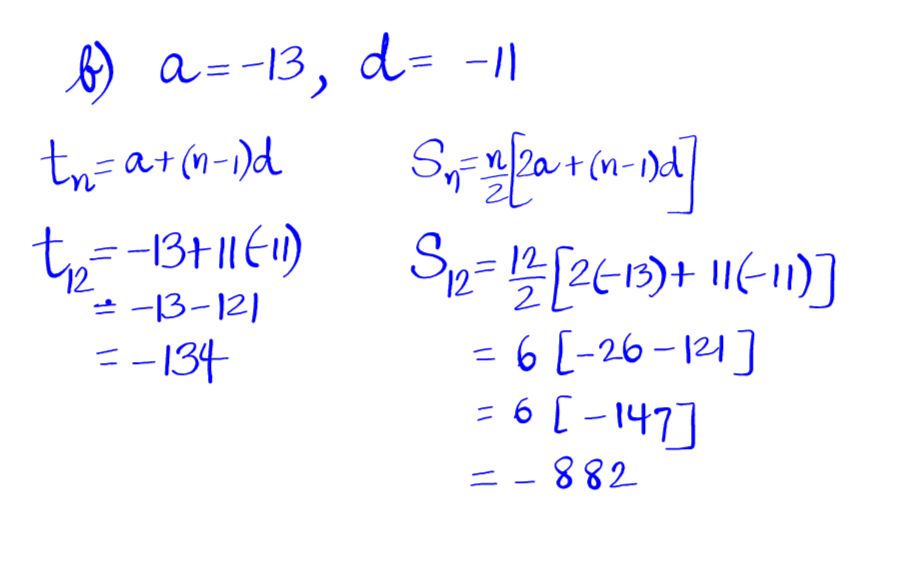 b) a = -13, d = -11
tₙ = a + (n-1)d
t₁₂ = -13 + 11(-11)
= -13 - 121
= -134
Sₙ = n/2 [2a + (n-1)d]
S₁₂ = 12/2 [2(-13) + 11(-11)]
= 6 [-26 - 121]
= 6 [-147]
= -882